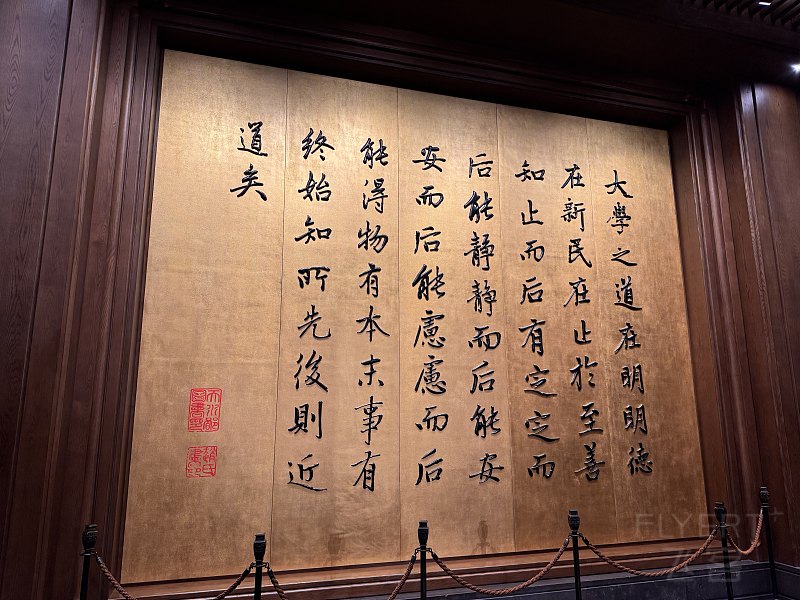 大學之道在明明德
在新民在止於至善
知止而后有定定而
后能静静而后能安
安而后能慮慮而后
能得物有本末事有
終始知所先後則近
道矣
天水郡
圖書印
趙氏
書印
FLYERT